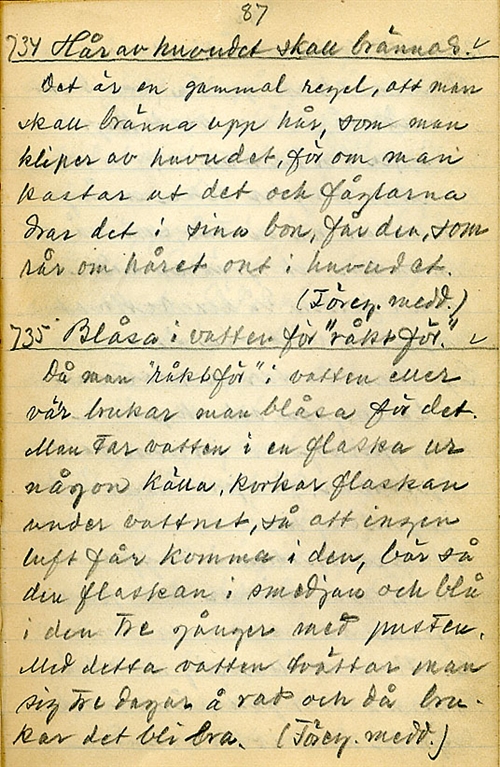 87
734 Hår av huvudet skall brännas.
Det är en gammal regel, att man
skall bränna upp hår, som man
kliper av huvudet, för om man
kastar ut det och fåglarna
drar det i sina bon, får den, som
rår om håret ont i huvudet.
(Föreg. medd.)
735 Blåsa i vatten för "råkt för."
Då man "råkt för" i vatten eller
vär brukar man blåsa för det.
Man tar vatten i en flaska ur
någon källa, korkar flaskan
under vattnet, så att ingen
luft får komma i den, bär så
den flaskan i smedjan och blå
i den tre gånger med pusten.
Med detta vatten tvättar man
sig tre dagar å rad och då bru-
kar det bli bra. (Föreg. medd.)